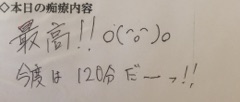 ◇本日の痴療内容
最高!! o(^o^)o
今度は120分だーっ!!